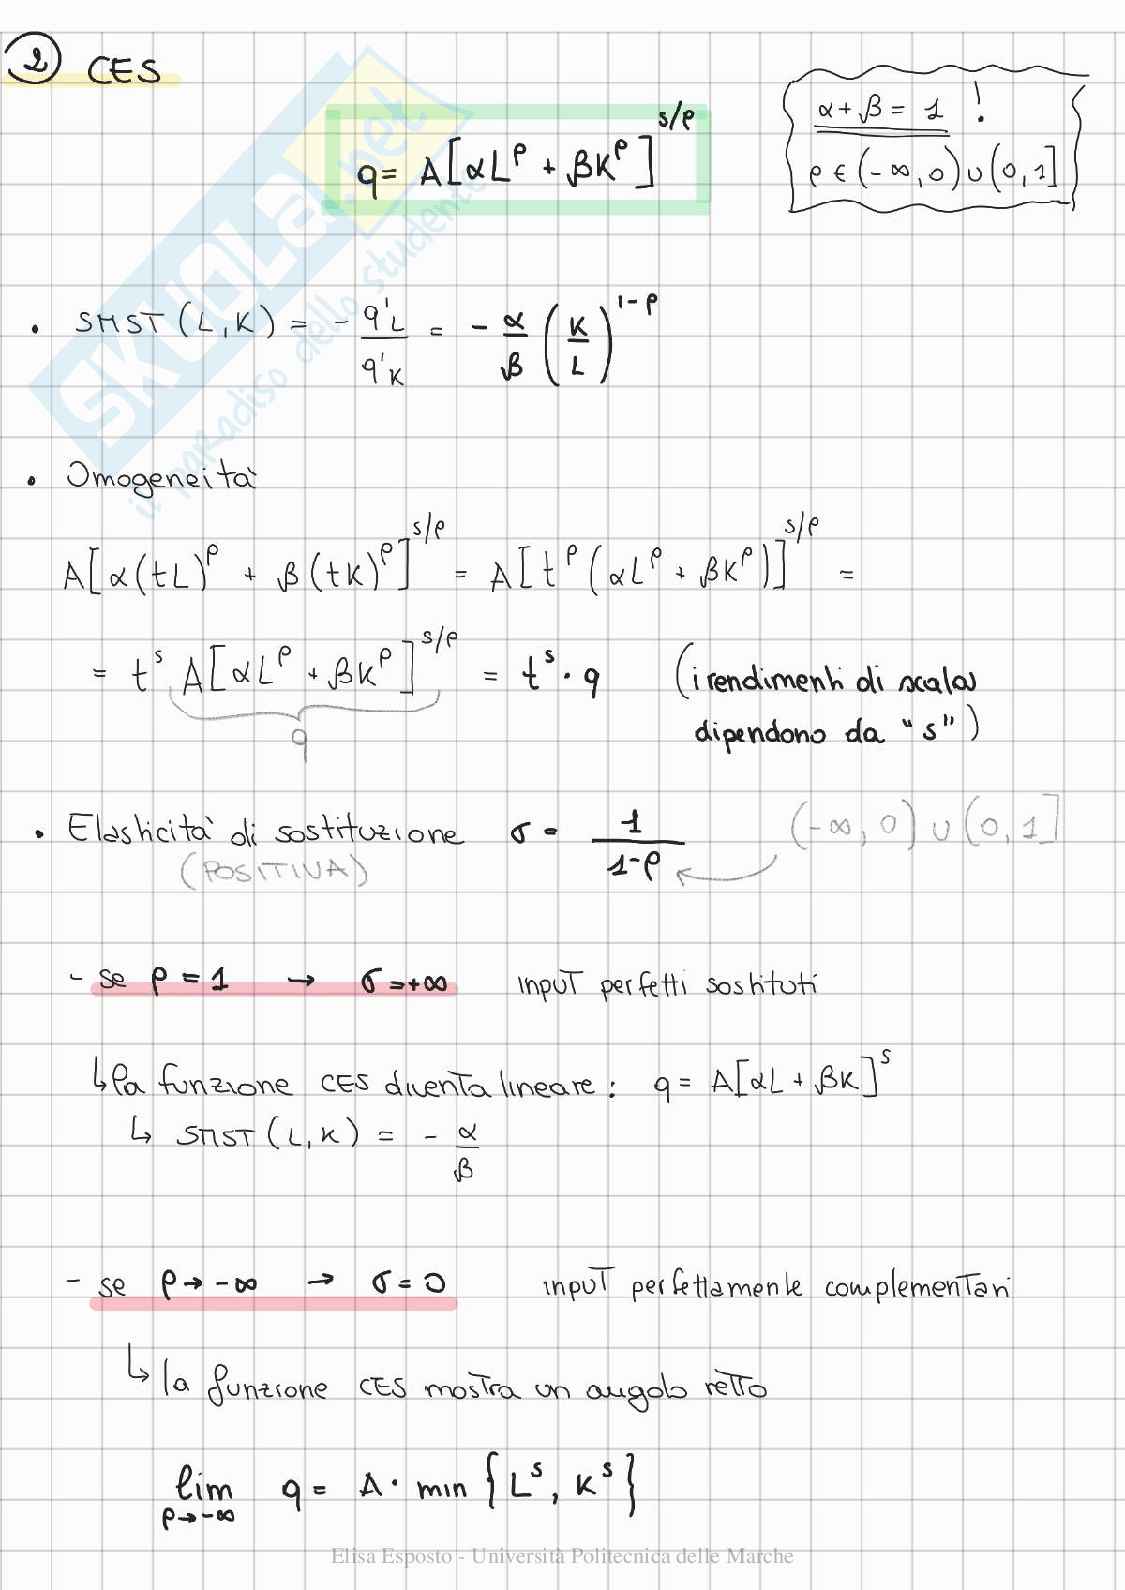 2 CES
q = A[αL^ρ + βK^ρ]^s/ρ
α + β = 1 !
ρ ∈ (-∞, 0) ∪ (0, 1]
• SMST (L, K) = - q'L / q'K = - α/β (K/L)^1-ρ
• Omogeneità
A[α(tL)^ρ + β(tK)^ρ]^s/ρ = A[t^ρ(αL^ρ + βK^ρ)]^s/ρ =
= t^s A[αL^ρ + βK^ρ]^s/ρ = t^s · q (i rendimenti di scala
q
dipendono da "s")
• Elasticità di sostituzione σ = 1 / 1-ρ (-∞, 0) ∪ (0, 1]
(POSITIVA)
- se ρ = 1 → σ = +∞ input perfetti sostituti
↳ la funzione CES diventa lineare : q = A[αL + βK]^s
↳ SMST (L, K) = - α/β
- se ρ → -∞ → σ = 0 input perfettamente complementari
↳ la funzione CES mostra un angolo retto
lim ρ→-∞ q = A · min {L^s, K^s}
SKUOLA.net
il paradiso dello studente
Elisa Esposto - Università Politecnica delle Marche